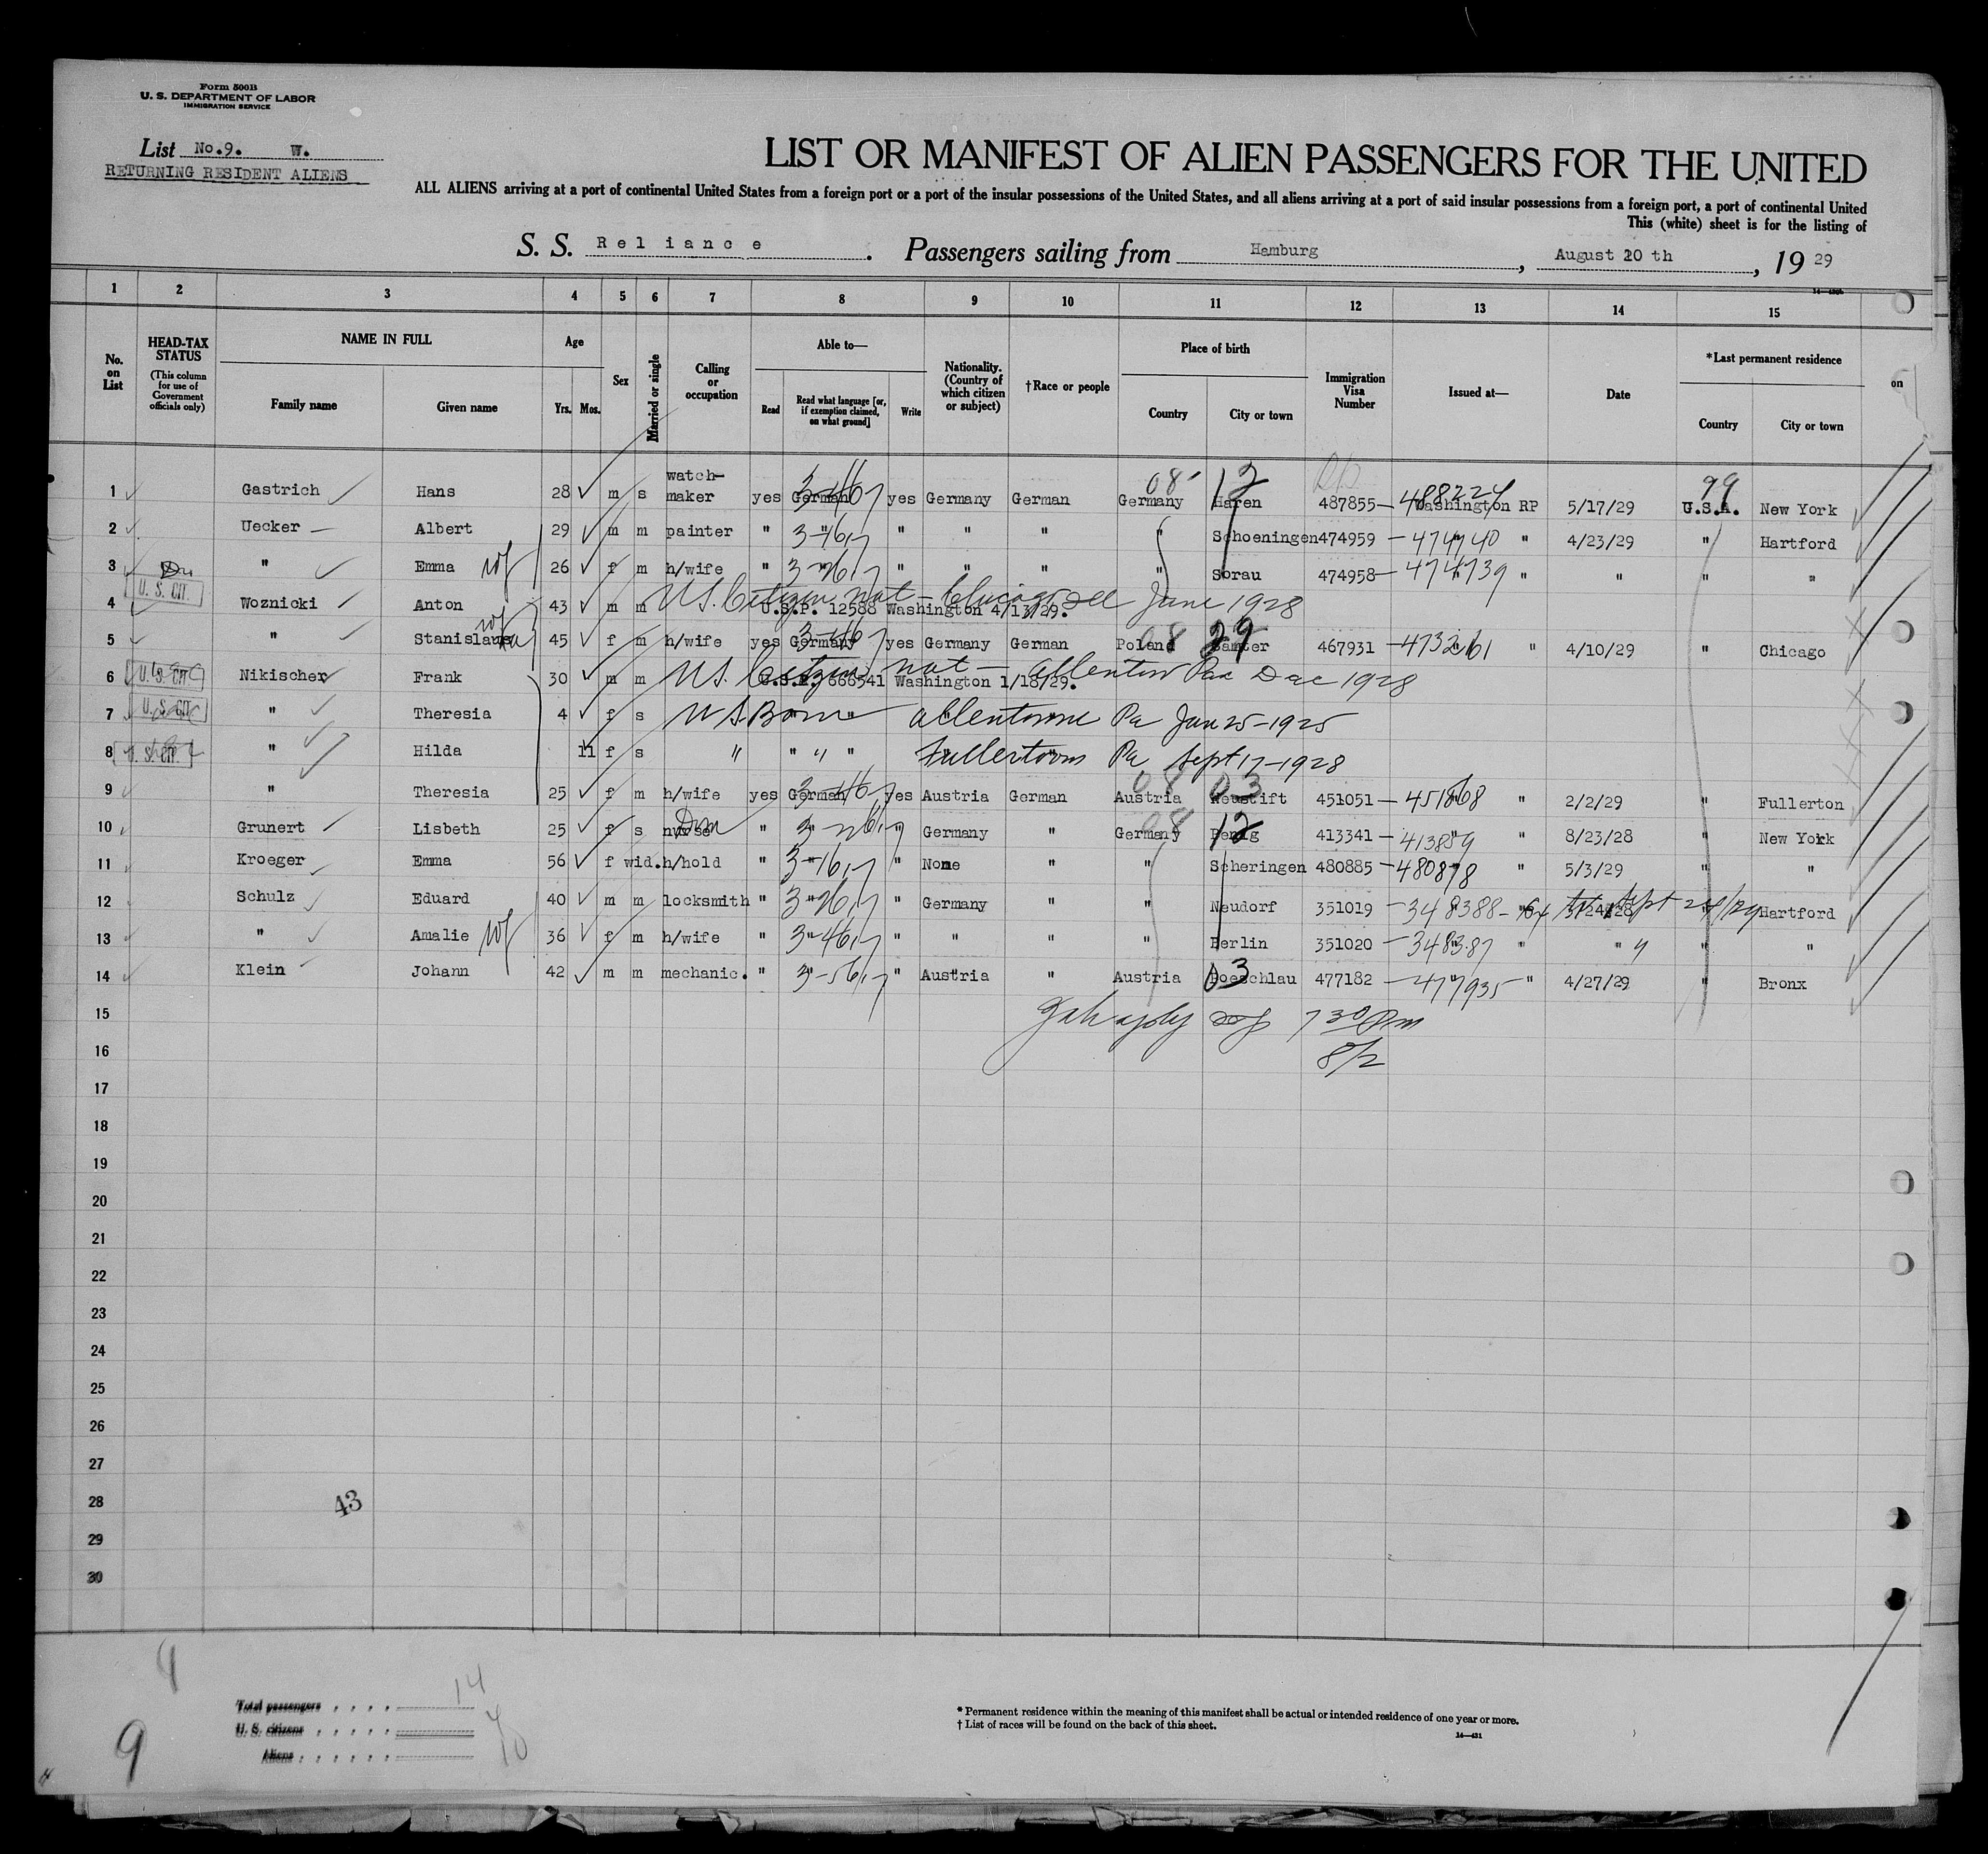 Form 500B
U. S. DEPARTMENT OF LABOR
IMMIGRATION SERVICE
List No.9. W.
RETURNING RESIDENT ALIENS
LIST OR MANIFEST OF ALIEN PASSENGERS FOR THE UNITED
ALL ALIENS arriving at a port of continental United States from a foreign port or a port of the insular possessions of the United States, and all aliens arriving at a port of said insular possessions from a foreign port, a port of continental United
This (white) sheet is for the listing of
S. S. Reliance. Passengers sailing from Hamburg, August 20 th, 19 29
1 2 3 4 5 6 7 8 9 10 11 12 13 14 15
No. on List
HEAD-TAX STATUS (This column for use of Government officials only)
NAME IN FULL
Family name Given name
Age
Yrs. Mos.
Sex
Married or single
Calling or occupation
Able to—
Read
Read what language [or, if exemption claimed, on what ground]
Write
Nationality. (Country of which citizen or subject)
†Race or people
Place of birth
Country City or town
Immigration Visa Number
Issued at—
Date
*Last permanent residence
Country City or town
on
1 Gastrich Hans 28 m s watch-maker yes German yes Germany German Germany 08 12 Haren 487855 — 488224 Washington RP 5/17/29 99 U.S.A. New York
2 Uecker Albert 29 m m painter " " " " " " Schoeningen 474959 — 474740 " 4/23/29 " Hartford
3 " Emma wf 26 f m h/wife " " " " " " Sorau 474958 — 474739 " " " "
4 U. S. CIT. Woznicki Anton 43 m m US. Citizen nat — Chicago Ill June 1928
U.S.P. 12588 Washington 4/13/29.
5 " Stanislawa wf 45 f m h/wife yes German yes Germany German Poland 08 29 Samter 467931 — 473261 " 4/10/29 " Chicago
6 U. S. CIT. Nikischer Frank 30 m m U.S. Citizen nat — Allentown Pa Dec 1928
U.S.P. 666541 Washington 1/18/29.
7 U. S. CIT. " Theresia 4 f s U S Born Allentown Pa Jan 25-1925
8 U. S. CIT. " Hilda 11 f s " " " " Fullerton Pa Sept 17-1928
9 " Theresia 25 f m h/wife yes German yes Austria German Austria 08 03 Neustift 451051 — 451868 " 2/2/29 " Fullerton
10 Grunert Lisbeth 25 f s nurse " " " Germany " Germany 08 12 Penig 413341 — 413859 " 8/23/28 New York
11 Kroeger Emma 56 f wid. h/hold " " " None " " Scheringen 480885 — 480878 " 5/3/29 " "
12 Schulz Eduard 40 m m locksmith " " " Germany " " Neudorf 351019 — 348388 - Ex to Sept 24/29 3/24/28 Hartford
13 " Amalie wf 36 f m h/wife " " " " " " Berlin 351020 — 348387 " " " "
14 Klein Johann 42 m m mechanic. " " " Austria " Austria 03 Poeschlau 477182 — 477935 " 4/27/29 " Bronx
15 7 30 Pm
16 8/2
17
18
19
20
21
22
23
24
25
26
27
28 43
29
30
9
Total passengers 14
U. S. citizens 4
Aliens 10
9
* Permanent residence within the meaning of this manifest shall be actual or intended residence of one year or more.
† List of races will be found on the back of this sheet.
14—431